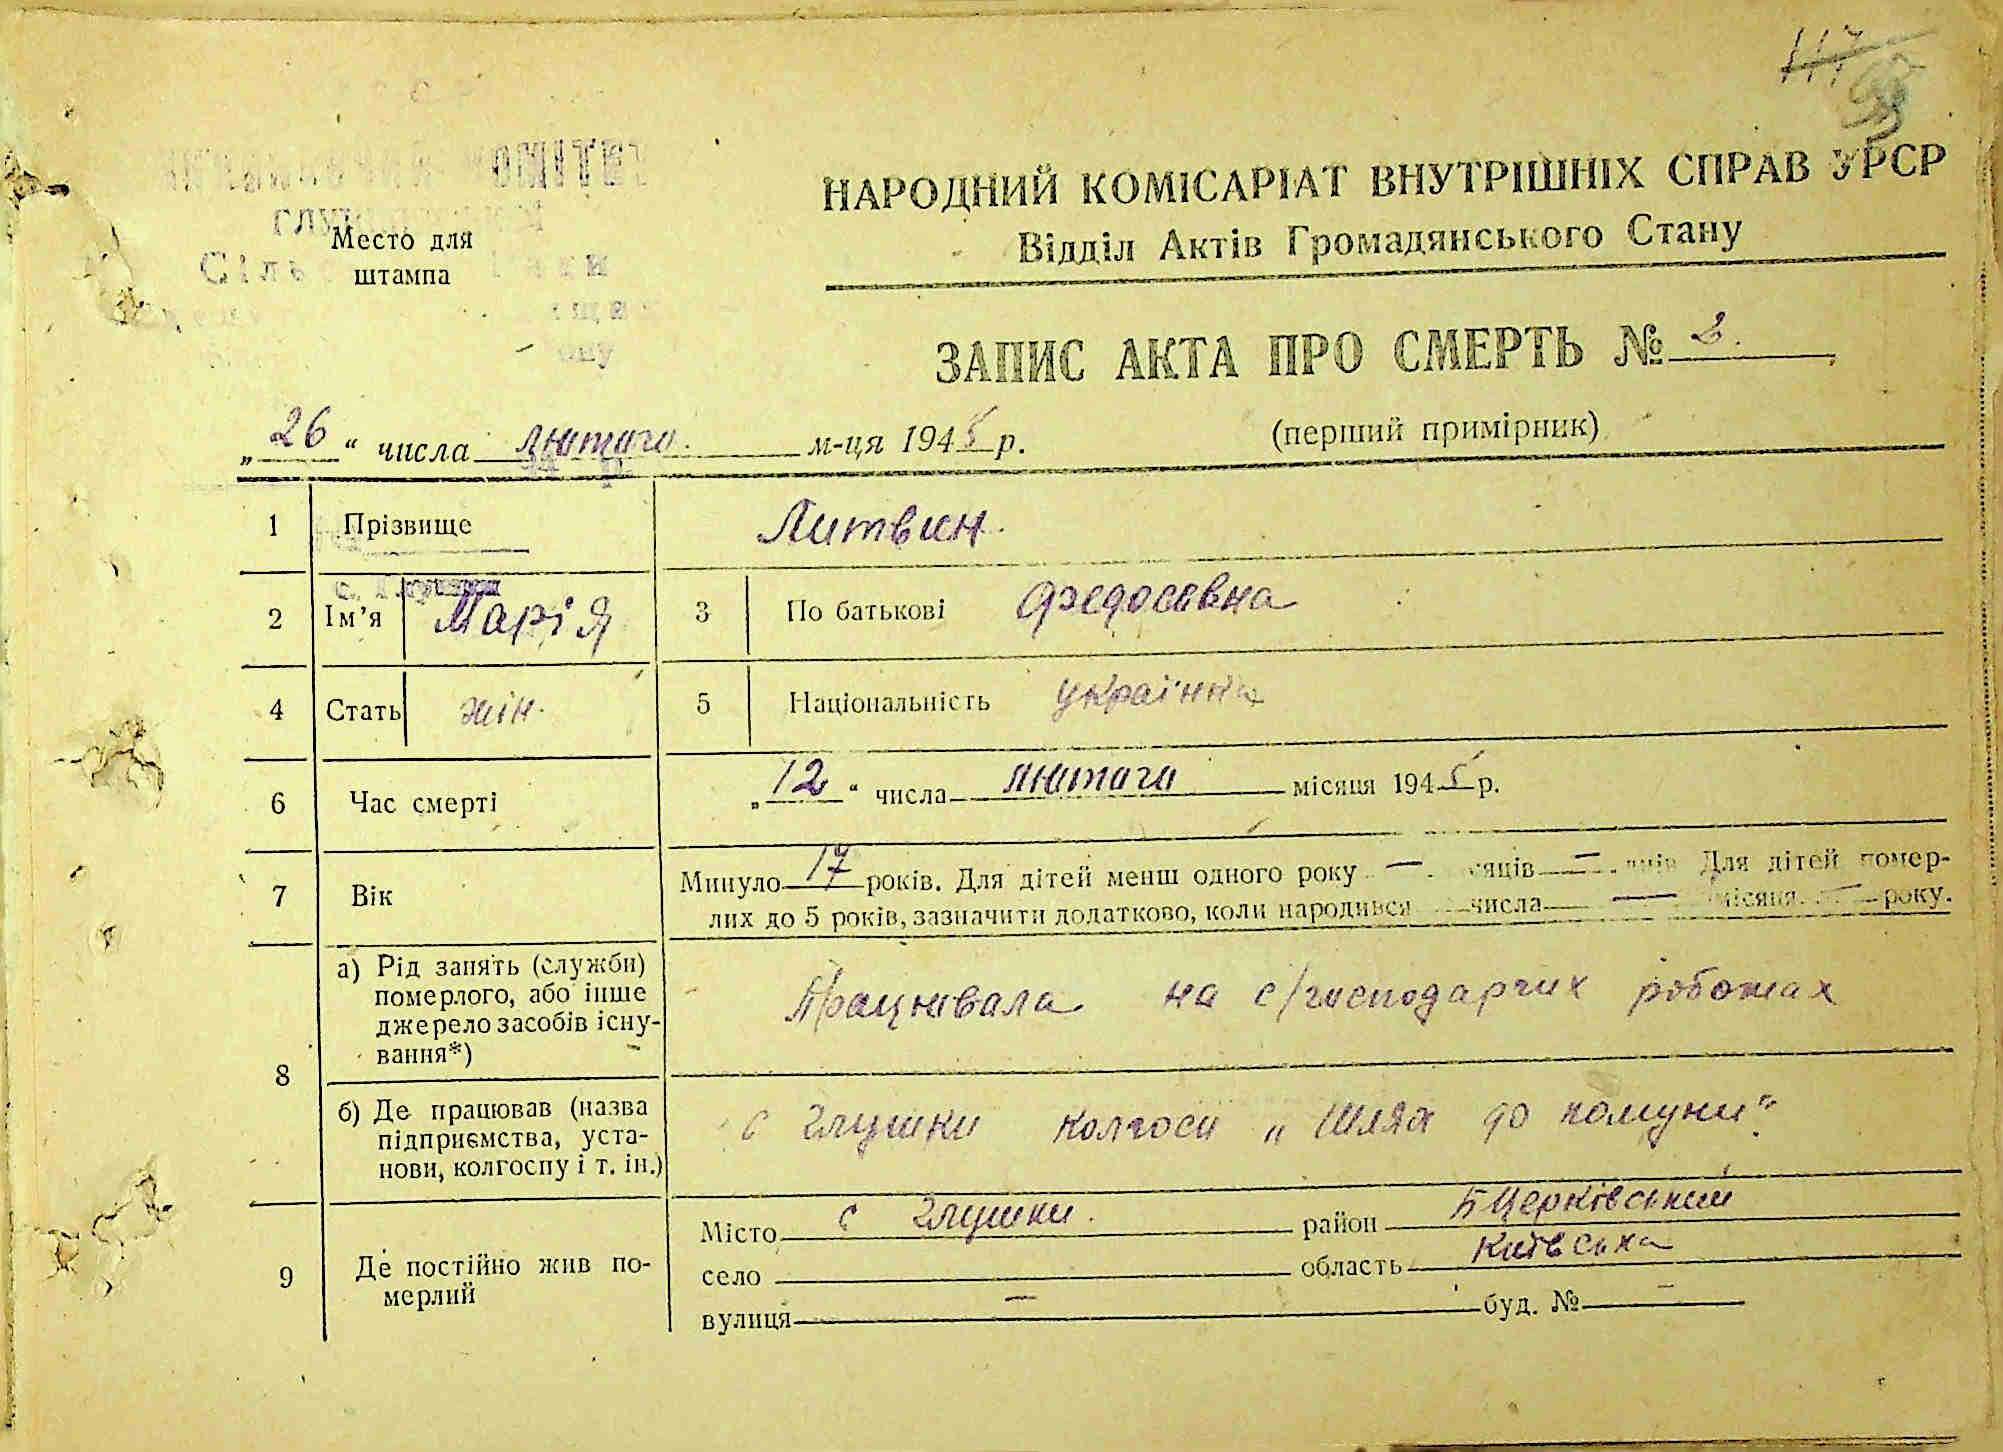 117
КОМІТЕТ
Место для
штампа
НАРОДНИЙ КОМІСАРІАТ ВНУТРІШНІХ СПРАВ УРСР
Відділ Актів Громадянського Стану
ЗАПИС АКТА ПРО СМЕРТЬ № 2.
„26“ числа лютого. м-ця 1945 р.
(перший примірник)
1 Прізвище Литвин.
2 Ім’я Марія 3 По батькові Федосевна
4 Стать жін. 5 Національність українка
6 Час смерті „12“ числа лютого місяця 1945 р.
7 Вік Минуло 17 років. Для дітей менш одного року — місяців — днів Для дітей помер-
лих до 5 років, зазначити додатково, коли народився числа — місяця — року.
8 а) Рід занять (служби)
померлого, або інше
джерело засобів існу-
вання*)
Працювала на с/господарчих роботах
б) Де працював (назва
підприємства, уста-
нови, колгоспу і т. ін.)
с Глушки колгосп „Шлях до комуни“
9 Де постійно жив по-
мерлий
Місто с Глушки. район БЦерківський
село область Київська
вулиця — буд. № —